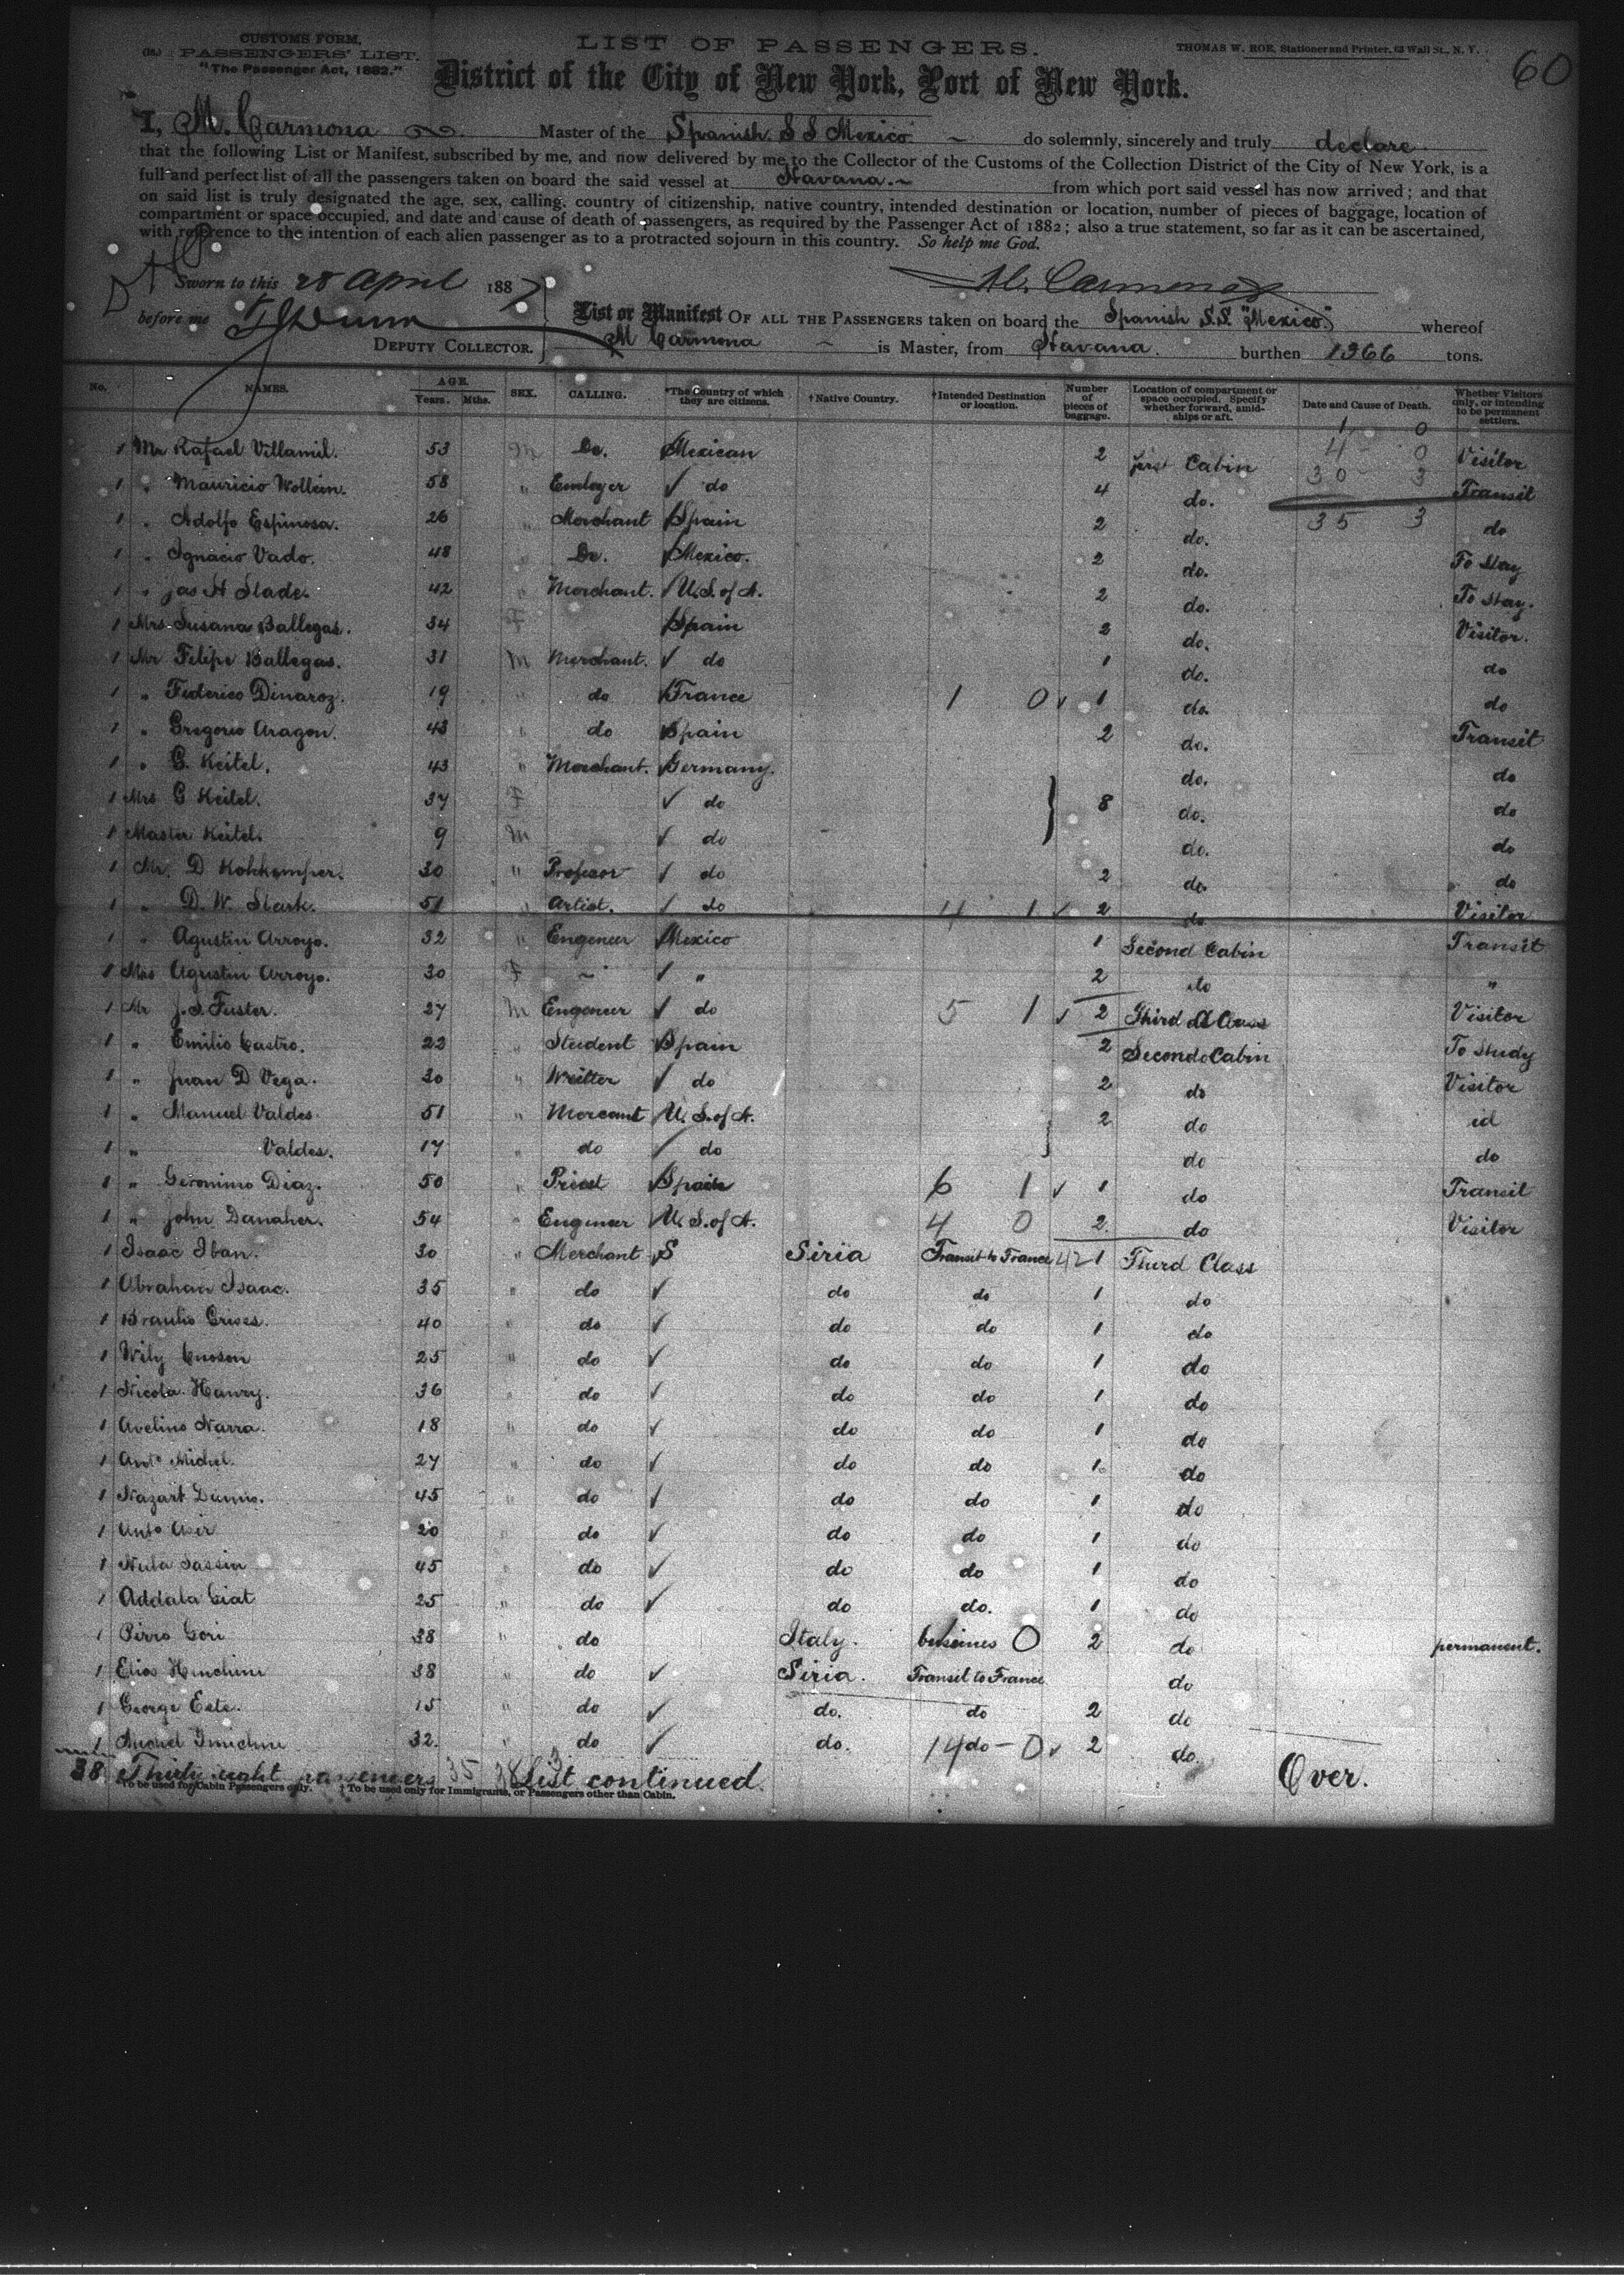 CUSTOMS FORM.
PASSENGERS' LIST.
"The Passenger Act, 1882."
LIST OF PASSENGERS.
THOMAS W. ROE, Stationer and Printer, 63 Wall St., N. Y.
60
District of the City of New York, Port of New York.
I, M. Carmona Master of the Spanish S S Mexico do solemnly, sincerely and truly declare
that the following List or Manifest, subscribed by me, and now delivered by me to the Collector of the Customs of the Collection District of the City of New York, is a
full and perfect list of all the passengers taken on board the said vessel at Havana. from which port said vessel has now arrived; and that
on said list is truly designated the age, sex, calling, country of citizenship, native country, intended destination or location, number of pieces of baggage, location of
compartment or space occupied, and date and cause of death of passengers, as required by the Passenger Act of 1882; also a true statement, so far as it can be ascertained,
with reference to the intention of each alien passenger as to a protracted sojourn in this country. So help me God.
Sworn to this 28 April 1887 M. Carmona
before me Dunn
DEPUTY COLLECTOR.
List or Manifest OF ALL THE PASSENGERS taken on board the Spanish S.S. "Mexico" whereof
M Carmona is Master, from Havana. burthen 1366 tons.
No. NAMES. AGE. Years. Mths. SEX. CALLING. *The Country of which they are citizens. †Native Country. †Intended Destination or location. Number of pieces of baggage. Location of compartment or space occupied. Specify whether forward, amidships or aft. Date and Cause of Death. Whether Visitors only, or intending to be permanent settlers.
1 0
4 0
30 3
35 3
1 Mr Rafael Villamil. 53 M Do. Mexican 2 first Cabin Visitor
1 " Mauricio Wollein. 58 " Employer do 4 do. Transit
1 " Adolfo Espinosa. 26 " Merchant Spain 2 do. do
1 " Ignacio Vado. 48 Do. Mexico. 2 do. To Stay
1 " Jas H Slade. 42 " Merchant. U.S. of A. 2 do. To Stay.
1 Mrs Susana Ballegas. 34 F Spain 2 do. Visitor.
1 Mr Felipe Ballegas. 31 M Merchant. do 1 do. do
1 " Federico Dinaroz. 19 " do France 1 0 1 do. do
1 " Gregorio Aragon. 43 " do Spain 2 do. Transit
1 " G. Keitel. 43 " Merchant. Germany. do. do
1 Mrs G Keitel. 37 F do 8 do. do
1 Master Keitel. 9 M do do. do
1 Mr. D Kohkemper. 30 " Profesor do 2 do. do
1 " D. W. Stark. 51 " Artist. do 4 1 2 do Visitor
1 " Agustin Arroyo. 32 " Engeneer Mexico 1 Second Cabin Transit
1 Mrs Agustin Arroyo. 30 F " 2 do "
1 Mr J. S. Fuster. 27 M Engeneer do 5 1 2 Third Class Visitor
1 " Emilio Castro. 22 " Student Spain 2 Second Cabin To Study
1 " Juan D Vega. 20 " Writter do 2 do Visitor
1 " Manuel Valdes. 51 " Mercant U. S. of A. 2 do id
1 " Valdes. 17 " do do do do
1 " Geronimo Diaz. 50 " Priest Spain 6 1 1 do Transit
1 " John Danaher. 54 " Engineer U. S. of A. 4 0 2 do Visitor
1 Isaac Iban. 30 " Merchant S Siria Transit to France 42 1 Third Class
1 Abrahan Isaac. 35 " do do do 1 do
1 Braulio Crives. 40 do do do 1 do
1 Wily Cuoson 25 " do do do 1 do
1 Nicola Hanry. 36 " do do do 1 do
1 Avelino Narra. 18 " do do do 1 do
1 Anto Michel. 27 " do do do 1 do
1 Nazart Dumio. 45 do do do 1 do
1 Anto Asir 20 " do do do 1 do
1 Nula Sassin 45 " do do do 1 do
1 Addala Ciat 25 " do do do. 1 do
1 Pirro Gori 38 " do Italy. busines 0 2 do permanent.
1 Elias Hinchini 38 " do Siria. Transit to France do
1 George Este. 15 " do do. do 2 do
1 Michel 32. do do. 14 do 0 2 do.
38 Thirty eight passengers 35 3 List continued. Over.
To be used for Cabin Passengers only. † To be used only for Immigrants, or Passengers other than Cabin.